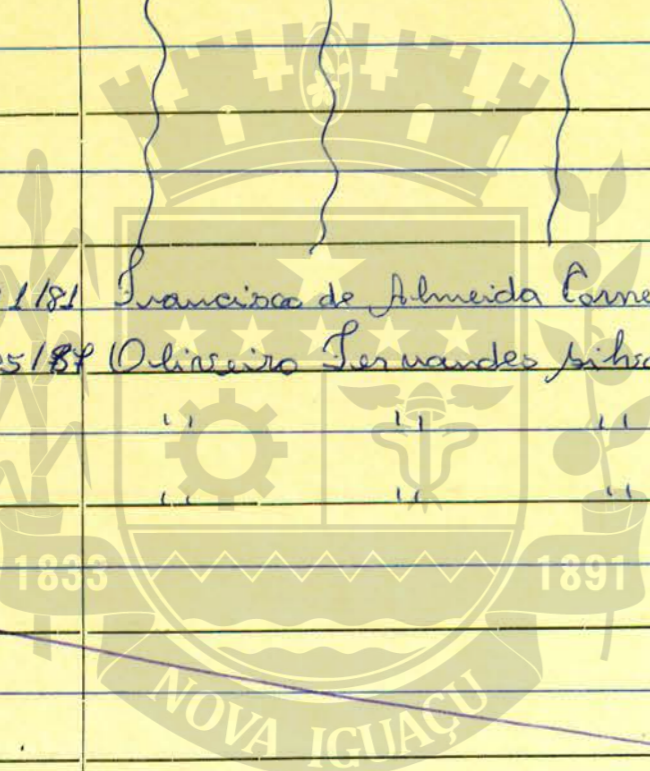 1/81 Francisco de Almeida Corne
5/87 Oliveira Fernandes Silva
" " "
" " "
1833 1891
NOVA IGUAÇU